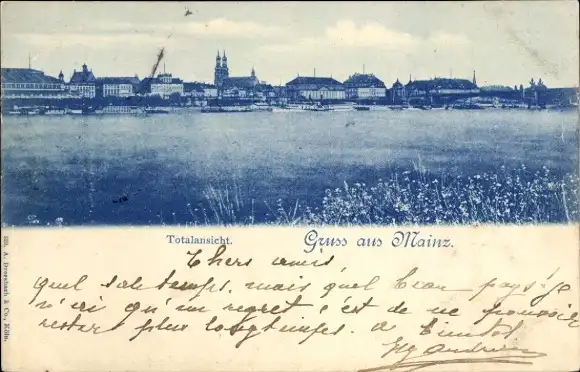 Totalansicht.
Gruss aus Mainz.
Chers amis,
Quel sale temps, mais quel beau pays. Je
n'ai qu'un regret c'est de ne pouvoir
rester plus longtemps. à bientôt
325. A. Droesbach & Co., Köln.